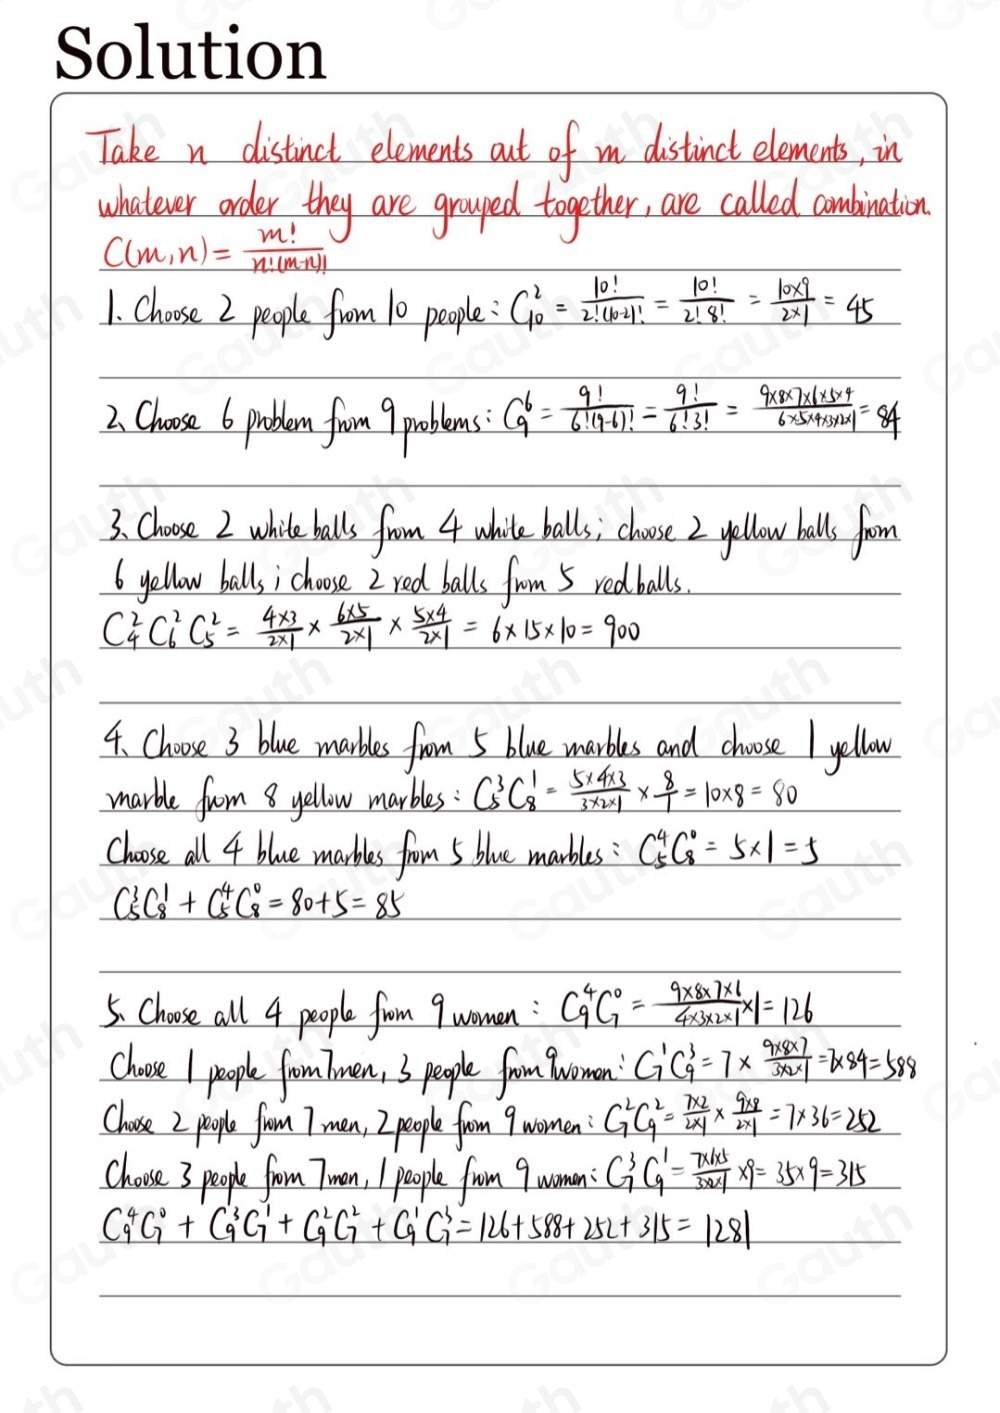 Solution
Take n distinct elements out of m distinct elements, in
whatever order they are grouped together, are called combination.
C(m,n) = m!/n!(m-n)!
1. Choose 2 people from 10 people: C₁₀² = 10!/2!(10-2)! = 10!/2!8! = 10×9/2×1 = 45
2、Choose 6 problem from 9 problems: C₉⁶ = 9!/6!(9-6)! = 9!/6!3! = 9×8×7×6×5×4/6×5×4×3×2×1 = 84
3、Choose 2 white balls from 4 white balls; choose 2 yellow balls from
6 yellow balls; choose 2 red balls from 5 red balls.
C₄² C₆² C₅² = 4×3/2×1 × 6×5/2×1 × 5×4/2×1 = 6×15×10 = 900
4、Choose 3 blue marbles from 5 blue marbles and choose 1 yellow
marble from 8 yellow marbles: C₅³C₈¹ = 5×4×3/3×2×1 × 8/1 = 10×8 = 80
Choose all 4 blue marbles from 5 blue marbles: C₅⁴C₈⁰ = 5×1 = 5
C₅³C₈¹ + C₅⁴C₈⁰ = 80+5 = 85
5. Choose all 4 people from 9 women: C₉⁴C₇⁰ = 9×8×7×6/4×3×2×1 ×1 = 126
Choose 1 people from 7 men, 3 people from 9 women: C₇¹C₉³ = 7× 9×8×7/3×2×1 = 7×84 = 588
Choose 2 people from 7 men, 2 people from 9 women: C₇²C₉² = 7×2/2×1 × 9×8/2×1 = 7×36 = 252
Choose 3 people from 7 men, 1 people from 9 women: C₇³C₉¹ = 7×6×5/3×2×1 ×9 = 35×9 = 315
C₉⁴C₇⁰ + C₉³C₇¹ + C₉²C₇² + C₉¹C₇³ = 126+588+252+315 = 1281
Gauth